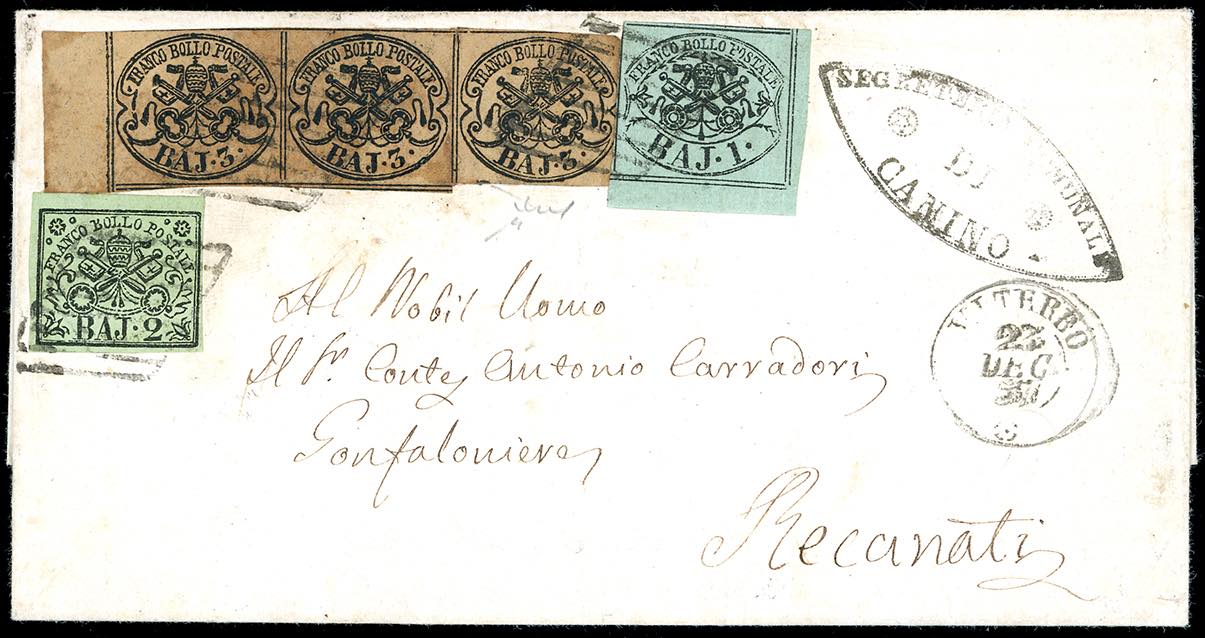 FRANCO BOLLO POSTALE
BAJ·3·
FRANCO BOLLO POSTALE
BAJ·3·
FRANCO BOLLO POSTALE
BAJ·3·
FRANCO BOLLO POSTALE
BAJ·1·
FRANCO BOLLO POSTALE
BAJ·2
DI
CANINO
VITERBO
23
DEC
Al Nobil Uomo
Il Sr. Conte Antonio Carradori
Gonfaloniere
Recanati